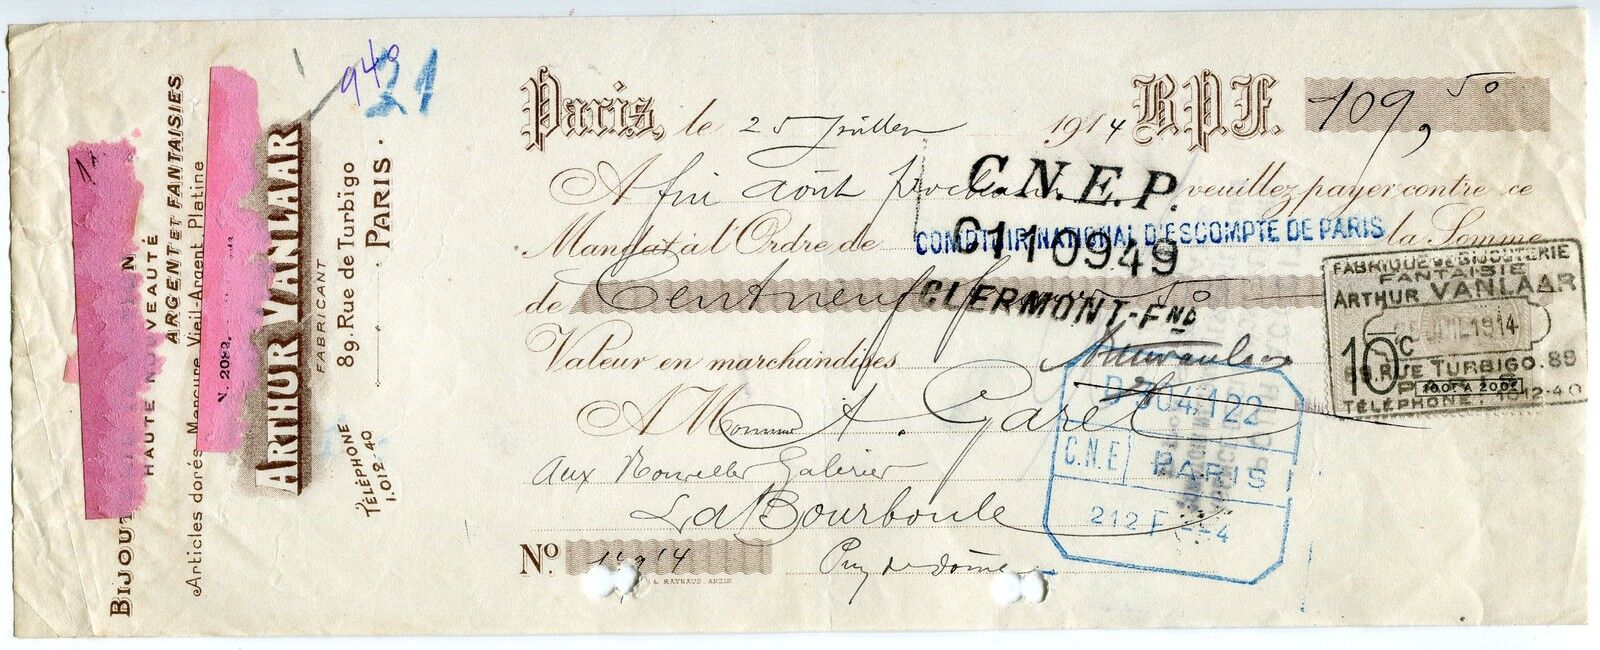 BIJOUT
HAUTE NOUVEAUTÉ
ARGENT ET FANTAISIES
Articles dorés, Mancure Vieil-Argent Platine
N. 2092.
ARTHUR VANLAAR
FABRICANT
89, Rue de Turbigo
PARIS.
TÉLÉPHONE
1.012-40
940
21
Paris, le 25 Juillet 1914 B.P.F. 109,50
A fin août prochain veuillez payer contre ce
Mandat à l'Ordre de la Somme
C.N.E.P.
COMPTOIR NATIONAL D'ESCOMPTE DE PARIS
0110949
CLERMONT-FND
de Cent neuf f
Valeur en marchandises
A Monsieur A. Garel
aux Nouvelles Galeries
La Bourboule
Puy de dôme
No
& RAYNAUD. ANZIN
D 304122
C.N.E PARIS
212 F
FABRIQUE DE BIJOUTERIE
FANTAISIE
ARTHUR VANLAAR
JUIL 1914
10c
89, RUE TURBIGO. 89
PARIS
100F A 200F
TÉLÉPHONE: 1012-40